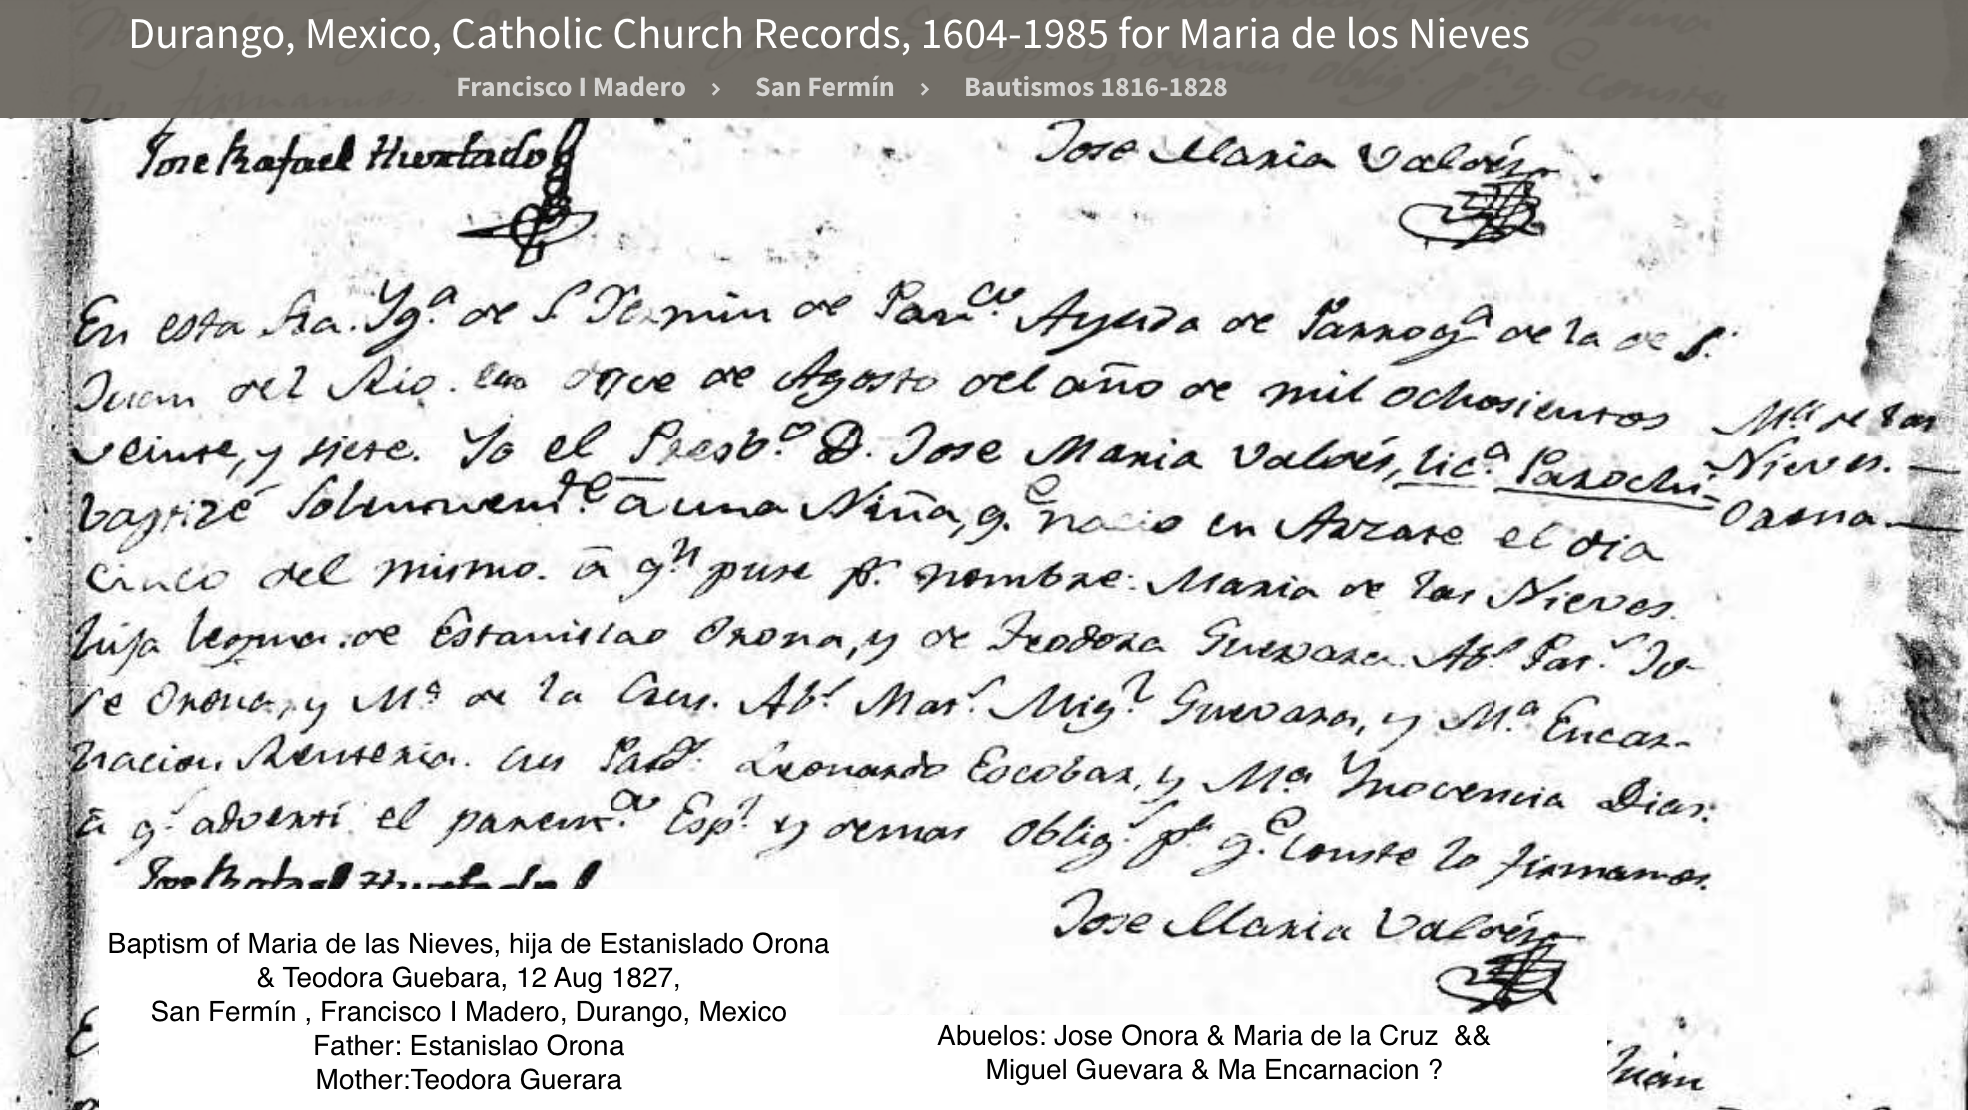 Durango, Mexico, Catholic Church Records, 1604-1985 for Maria de los Nieves
Francisco I Madero › San Fermín › Bautismos 1816-1828
Jose Rafael Hurtado
Jose Maria Valdés
En esta Sta. Yg.ª de S. Fermin de Pan.co Ayuda de Parrog.ª de la de S.
Juan del Rio. en doce de Agosto del año de mil ochosientos
veinte, y siete. Yo el Presb.o D. Jose Maria Valdés, Lic.ª Parochi=
baptizé Solemnem.te â una Niña, q.e nacio en Anzare el dia
cinco del mismo. â q.n puse p.r nombre: Maria de las Nieves.
hija legma. de Estanislao Orona, y de Teodora Guevara. Ab.s Pat.s Jo-
se Orona, y M.ª de la Crus. Ab.s Mat.s Mig.l Guevara, y M.ª Encar-
nacion Renteria. sus Pad.s Leonardo Escobar, y M.ª Ynocencia Dias:
â q.s adverti el parent.co Esp.l y demas oblig.s p.ª q.e conste lo firmamos.
M.ª de las
Nieves.
Orona
Jose Rafael Hurtado
Jose Maria Valdés
Baptism of Maria de las Nieves, hija de Estanislado Orona
& Teodora Guebara, 12 Aug 1827,
San Fermín , Francisco I Madero, Durango, Mexico
Father: Estanislao Orona
Mother:Teodora Guerara
Abuelos: Jose Onora & Maria de la Cruz &&
Miguel Guevara & Ma Encarnacion ?
Juan